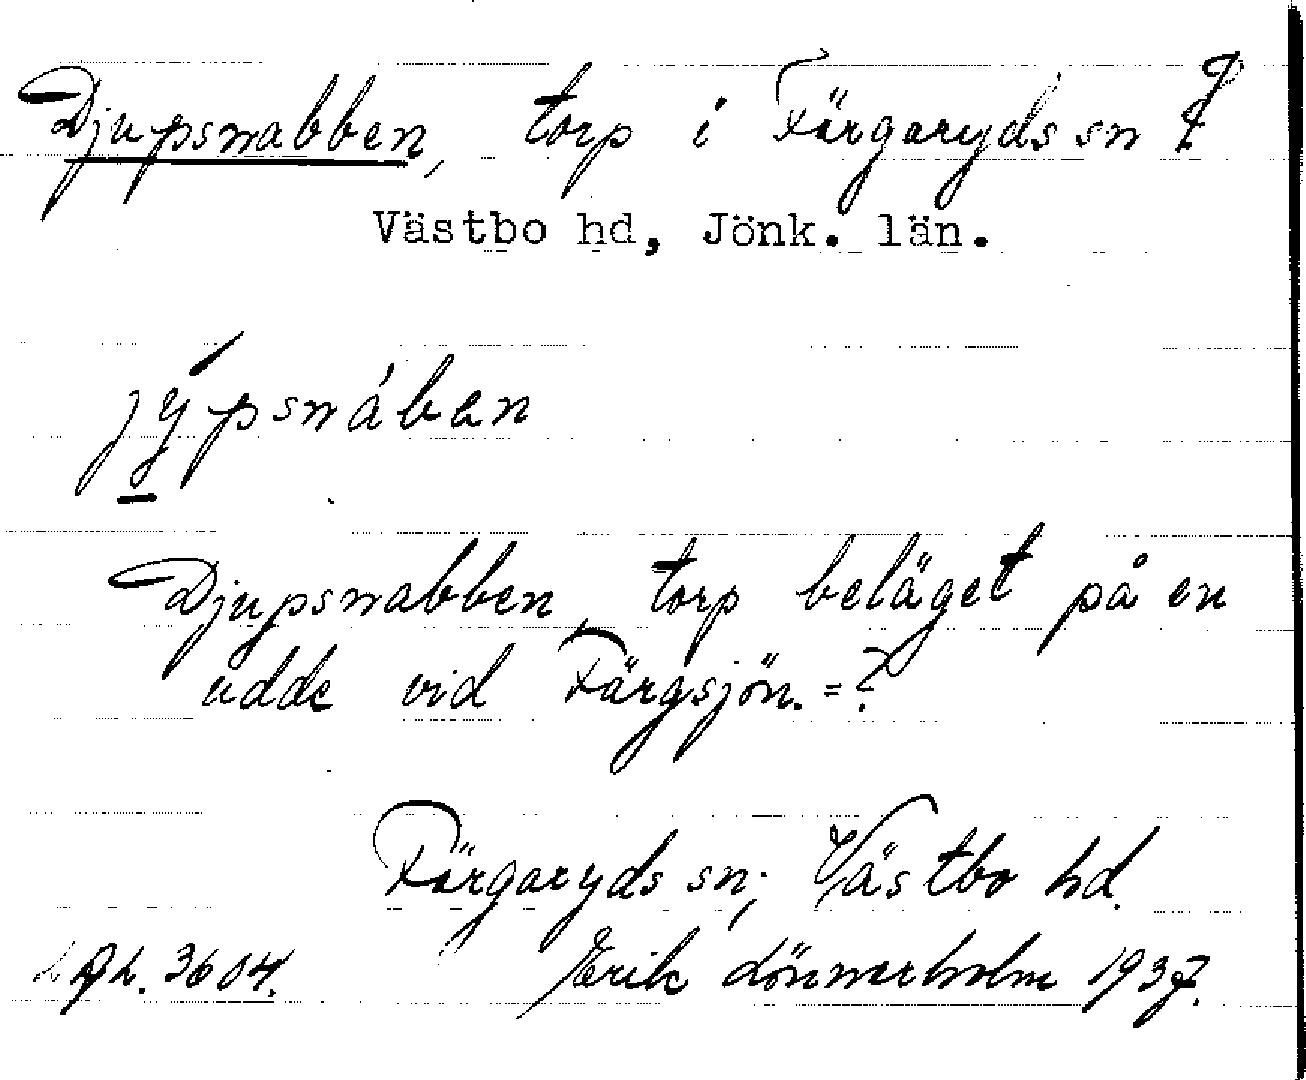 Djupsnabben, torp i Färgaryds sn
Västbo hd, Jönk. län.
jýpsnáben
Djupsnabben, torp beläget på en
udde vid Färgsjön. = ?
Färgaryds sn; Västbo hd.
3604. Erik Lönnerholm 1937.